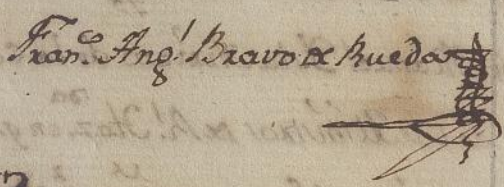 Franco Angl Bravo de Rueda